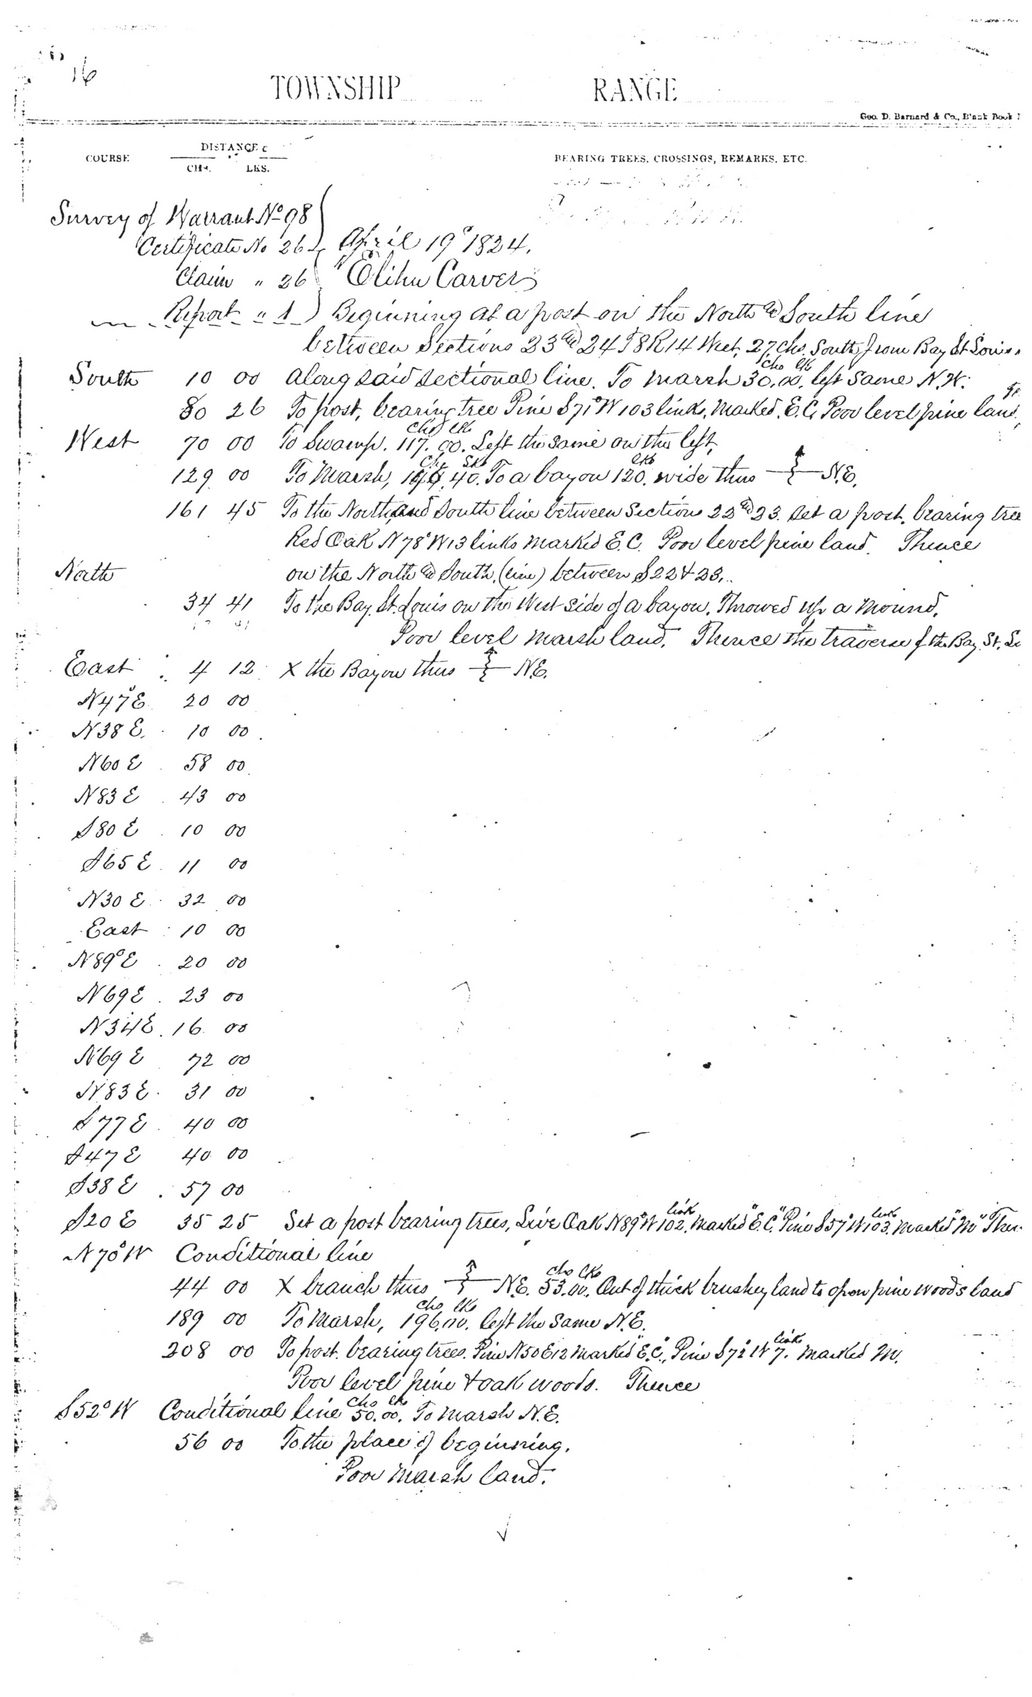 16
TOWNSHIP RANGE
Geo. D. Barnard & Co., Blank Book
COURSE DISTANCE BEARING TREES, CROSSINGS, REMARKS, ETC.
CHS. LKS.
Survey of Warrant No 98
Certificate No 26 April 19th 1824.
Claim " 26 Elihu Carver
Report " 1 Beginning at a post on the North & South line
between Sections 23 & 24 T8 R14 West, 27 Chs. South from Bay St Louis
South 10 00 along said sectional line. To marsh 30 Chs 00 lk. left same N.W.
80 26 To post, bearing tree Pine S71°W 103 link, marked E.C. Poor level pine land,
West 70 00 To Swamp. 117 Chs 00 lk. Left the same on the left,
129 00 To Marsh, 40. To a bayou 120 lks wide thus N.E.
161 45 To the North and South line between Sections 22 & 23. set a post. bearing tree
Red Oak N78°W 13 links marked E.C. Poor level pine land. Thence
North on the North & South (line) between S22 & 23..
34 41 To the Bay St. Louis on the West side of a bayou. Throwed up a mound.
Poor level marsh land. Thence the traverse of the Bay St.
East 4 12 X the Bayou thus N.E.
N47°E 20 00
N38 E. 10 00
N60 E 58 00
N83 E 43 00
S80 E 10 00
S65 E 11 00
N30 E 32 00
East 10 00
N89°E 20 00
N69 E 23 00
N34 E 16 00
N69 E 72 00
N83 E 31 00
S77 E 40 00
S47 E 40 00
S38 E 57 00
S20 E 35 25 Set a post bearing trees, Live Oak N89°W 102 link, marked "E.C." Pine S57°W 103 link marked "M"
N70°W Conditional line
44 00 X branch thus N.E. 53 Chs 00 lks. Out of thick brushey land to open pine woods land
189 00 To Marsh, 196 Chs 00 lks. left the same N.E.
208 00 To post. bearing trees. Pine N50 E 12 marked "E.C.", Pine S72 W 7 link. marked M.
Poor level pine & oak woods. Thence
S52°W Conditional line 50 Chs 00 lk. To marsh N.E.
56 00 To the place of beginning.
Poor marsh land.